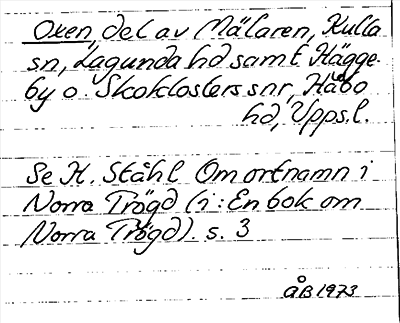 Oxen, del av Mälaren, Kulla
sn, Lagunda hd samt Hägge-
by o. Skoklosters snr, Håbo
hd, Upps.l.
Se H. Ståhl Om ortnamn i
Norra Trögd (i: En bok om
Norra Trögd). s. 3
ÅB 1973